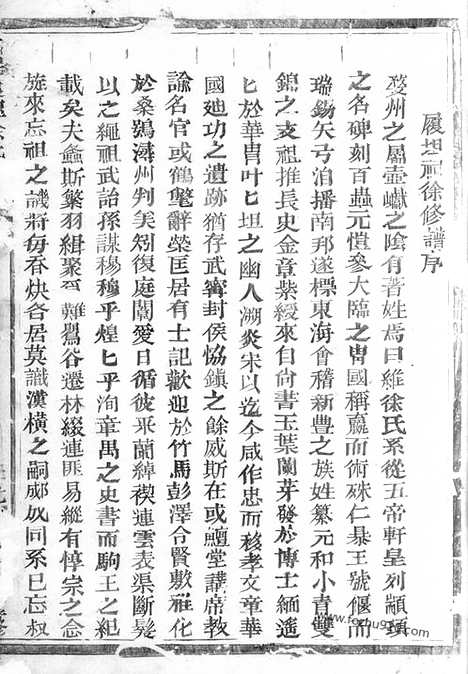 履坦祀徐修譜序
婺州之屬壺巘之陰有著姓焉曰維徐氏系從五帝軒皇列顓頊
之名碑刻百蟲元愷參大臨之冑國稱嬴而術殊仁暴王號偃而
瑞錫矢弓洎播南邦遂標東海會稽新豐之族姓纂元和小青雙
錦之支祖推長史金章紫綬來自尚書玉葉蘭芽發於博士緬遙
匕於華冑叶匕坦之幽人溯炎宋以迄今咸作忠而移孝文章華
國廸功之遺跡猶存武寗封侯恊鎮之餘威斯在或鱣堂講席教
諭名官或鶴氅辭榮匡居有士記歡迎於竹馬彭澤合賢敷雅化
於桑鵶潯州判美矧復庭闈愛日循彼采蘭綽楔連雲表渠斷髮
以之繩祖武詒孫謀穆穆乎煌匕乎洵華禺之史書而駒王之紀
載矣夫螽斯蟄羽緝聚難鸎谷遷林綴連匪易縱有惇宗之念
旋來忘祖之譏將毋春炔各居莫識漢橫之嗣郕奴同系已忘叔
www.fozhug.com